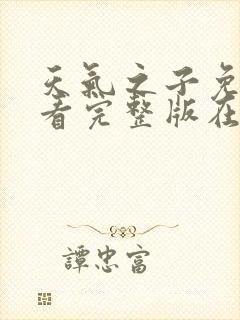 天氣之子免
看完整版在
譚忠富